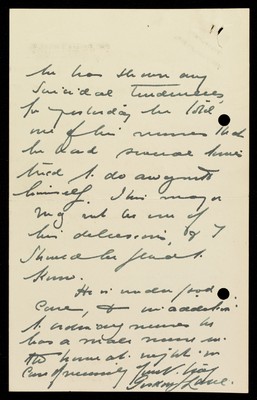 he has shown any
suicidal tendencies,
for yesterday he told
one of his nurses that
he had several times
tried to do away with
himself. This may or
may not be one of
his delusions, but I
should be glad to
know.
He is under good
care, & in addition
to ordinary nurses he
has a male nurse in
the house at night in
case of necessity